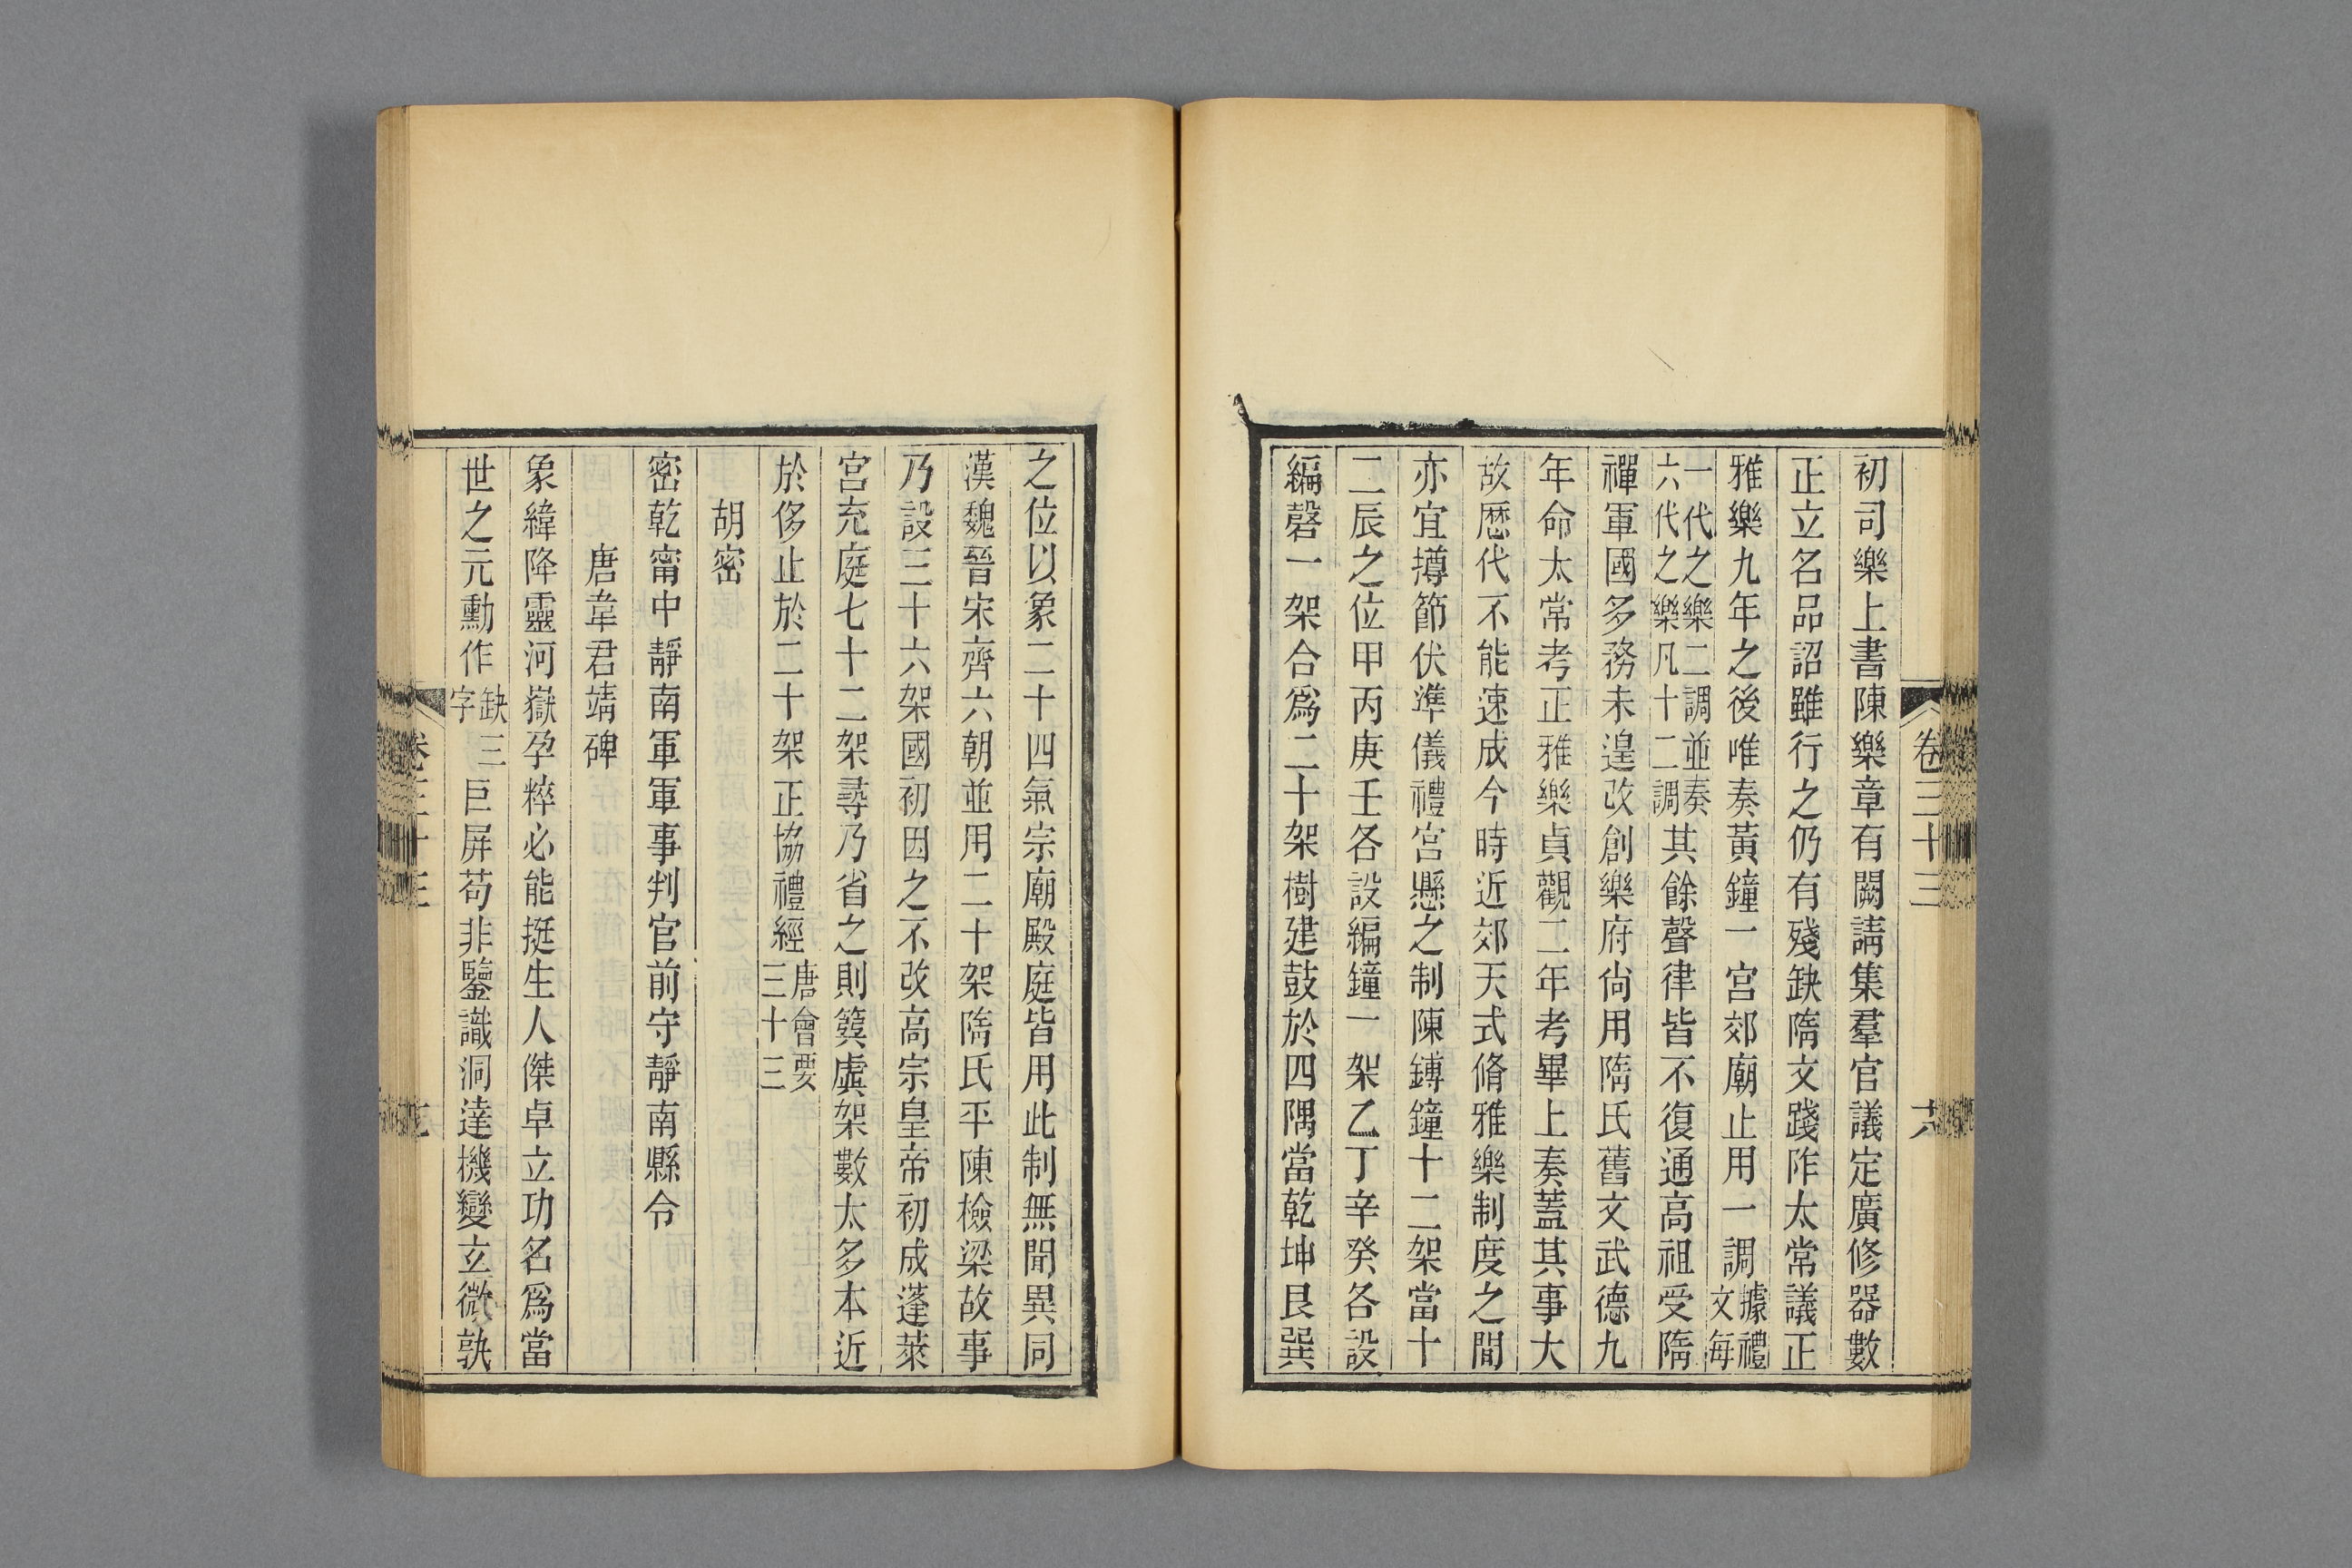 卷三十三
初司樂上書陳樂章有闕請集羣官議定廣修器數
正立名品詔雖行之仍有殘缺隋文踐阼太常議正
雅樂九年之後唯奏黃鐘一宮郊廟止用一調據禮文每
一代之樂二調並奏六代之樂凡十二調其餘聲律皆不復通高祖受隋
禪軍國多務未遑改創樂府尙用隋氏舊文武德九
年命太常考正雅樂貞觀二年考畢上奏蓋其事大
故歴代不能速成今時近郊天式脩雅樂制度之間
亦宜撙節伏準儀禮宮懸之制陳鎛鐘十二架當十
二辰之位甲丙庚壬各設編鐘一架乙丁辛癸各設
編磬一架合爲二十架樹建鼓於四隅當乾坤艮巽
之位以象二十四氣宗廟殿庭皆用此制無聞異同
漢魏晉宋齊六朝並用二十架隋氏平陳檢梁故事
乃設三十六架國初因之不改高宗皇帝初成蓬萊
宮充庭七十二架尋乃省之則簨虡架數太多本近
於侈止於二十架正協禮經唐會要三十三
胡密
密乾甯中靜南軍軍事判官前守靜南縣令
唐韋君靖碑
象緯降靈河嶽孕粹必能挺生人傑卓立功名爲當
世之元勳作缺三字巨屏苟非鑒識洞達機變玄微孰
卷三十三